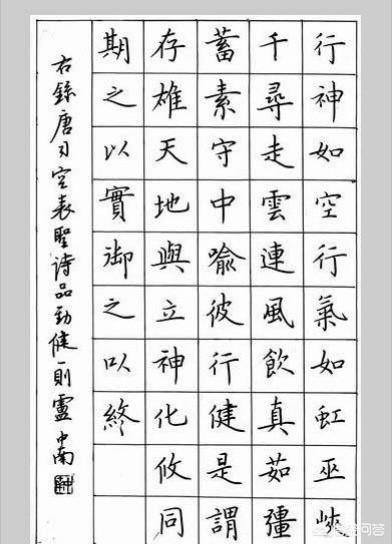 行神如空行氣如虹巫峽
千尋走雲連風飲真茹彊
蓄素守中喻彼行健是謂
存雄天地與立神化攸同
期之以實御之以終
右錄唐司空表聖詩品勁健一則盧中南
悟空问答